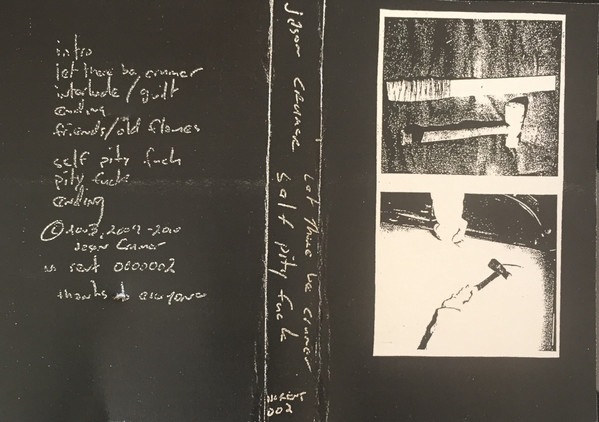 intro
let there be crumer
interlude / guilt
ending
friends/old flames
self pity fuck
pity fuck
ending
© 2003, 2009-2010
Jason Crumer
no rent 0000002
thanks to everyone
Jason Crumer Let there be crumer
self pity fuck
NO RENT
002